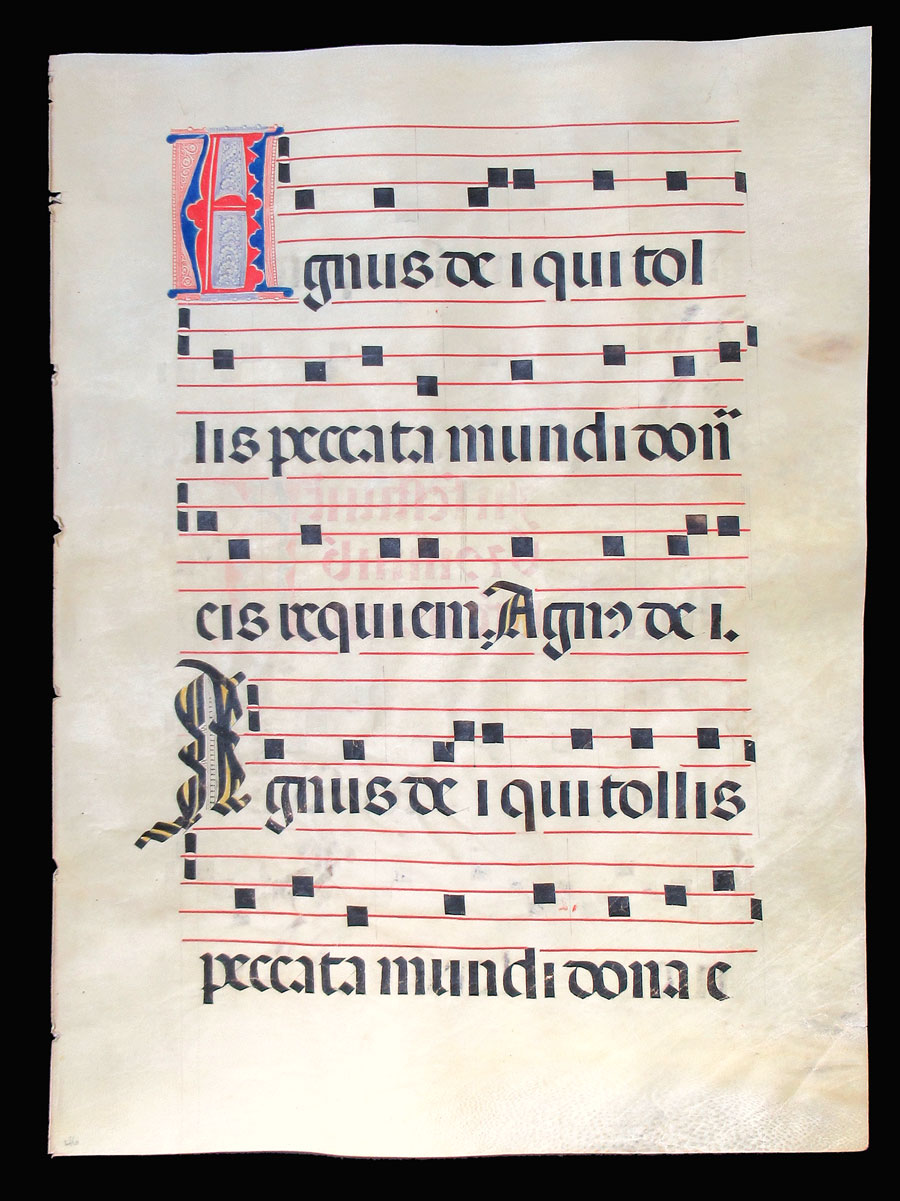 Agnus dei qui tol
lis peccata mundi doñ
eis requiem. Agnꝰ dei.
Agnus dei qui tollis
peccata mundi dona e